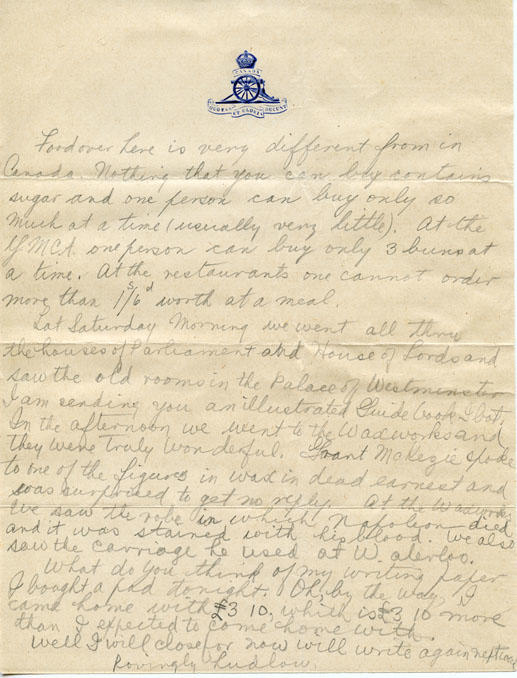 CANADA
QUO FAS ET GLORIA DUCUNT
Food over here is very different from in
Canada. Nothing that you can buy contains
sugar and one person can buy only so
much at a time (usually very little). At the
YMCA. one person can buy only 3 buns at
a time. At the restaurants one cannot order
more than 1s/6d worth at a meal.
Lat Saturday Morning we went all thru
the houses of Parliament and House of Lords and
saw the old rooms in the Palace of Westminster
I am sending you an illustrated Guide book I bot.
In the afternoon we went to the Waxworks and
they were truly wonderful. Grant McKezie spoke
to one of the figures in wax in dead earnest and
was surprised to get no reply. At the Waxworks
we saw the robe in which Napoleon died
and it was stained with his blood. We also
saw the carriage he used at Waterloo.
What do you think of my writing paper
I bought a pad tonight. Oh, by the way, I
came home with £3 10. which is £3 10 more
than I expected to come home with.
Well I will close for now will write again next
Lovingly Ludlow.